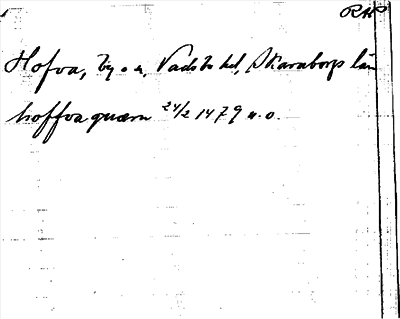 RAP
Hofva, by o. s, Vadsbo hd, Skaraborgs län
hoffva quærn 24/2 1479 n.o.